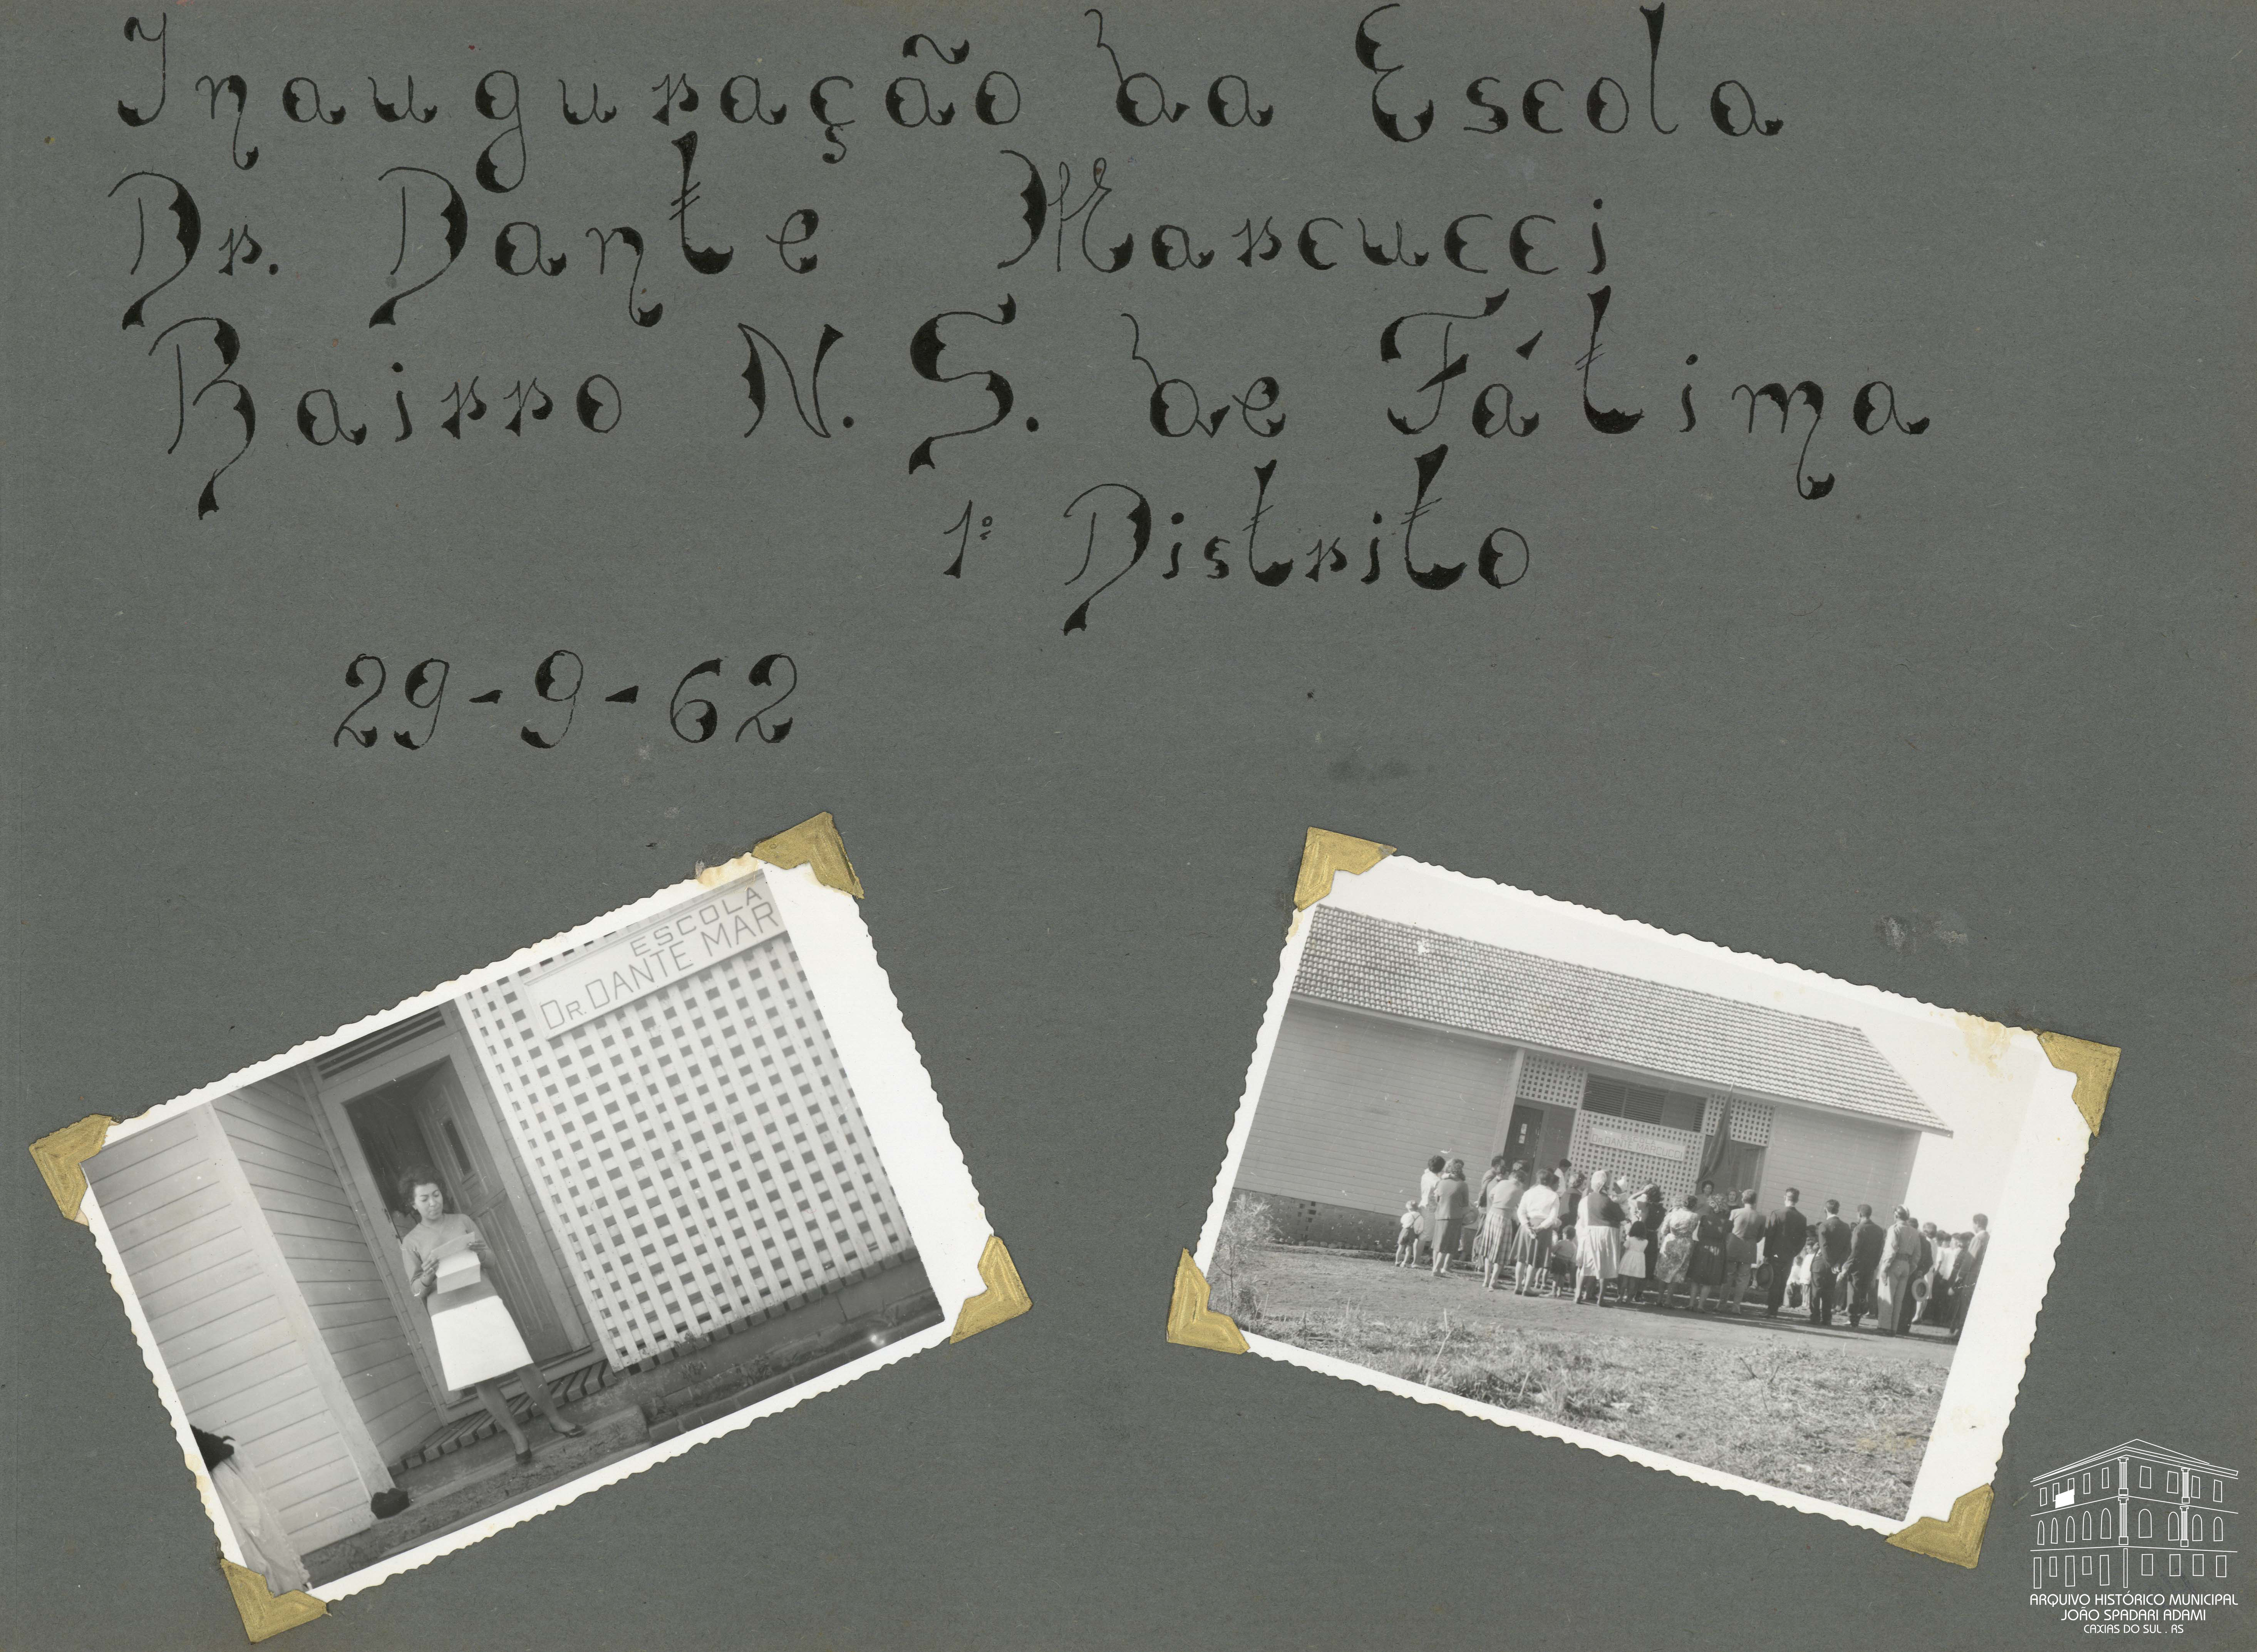 Inauguração da Escola
Dr. Dante Marcucci
Bairro N. S. de Fátima
1º Distrito
29-9-62
ESCOLA
DR. DANTE MAR
ARQUIVO HISTÓRICO MUNICIPAL
JOÃO SPADARI ADAMI
CAXIAS DO SUL . RS